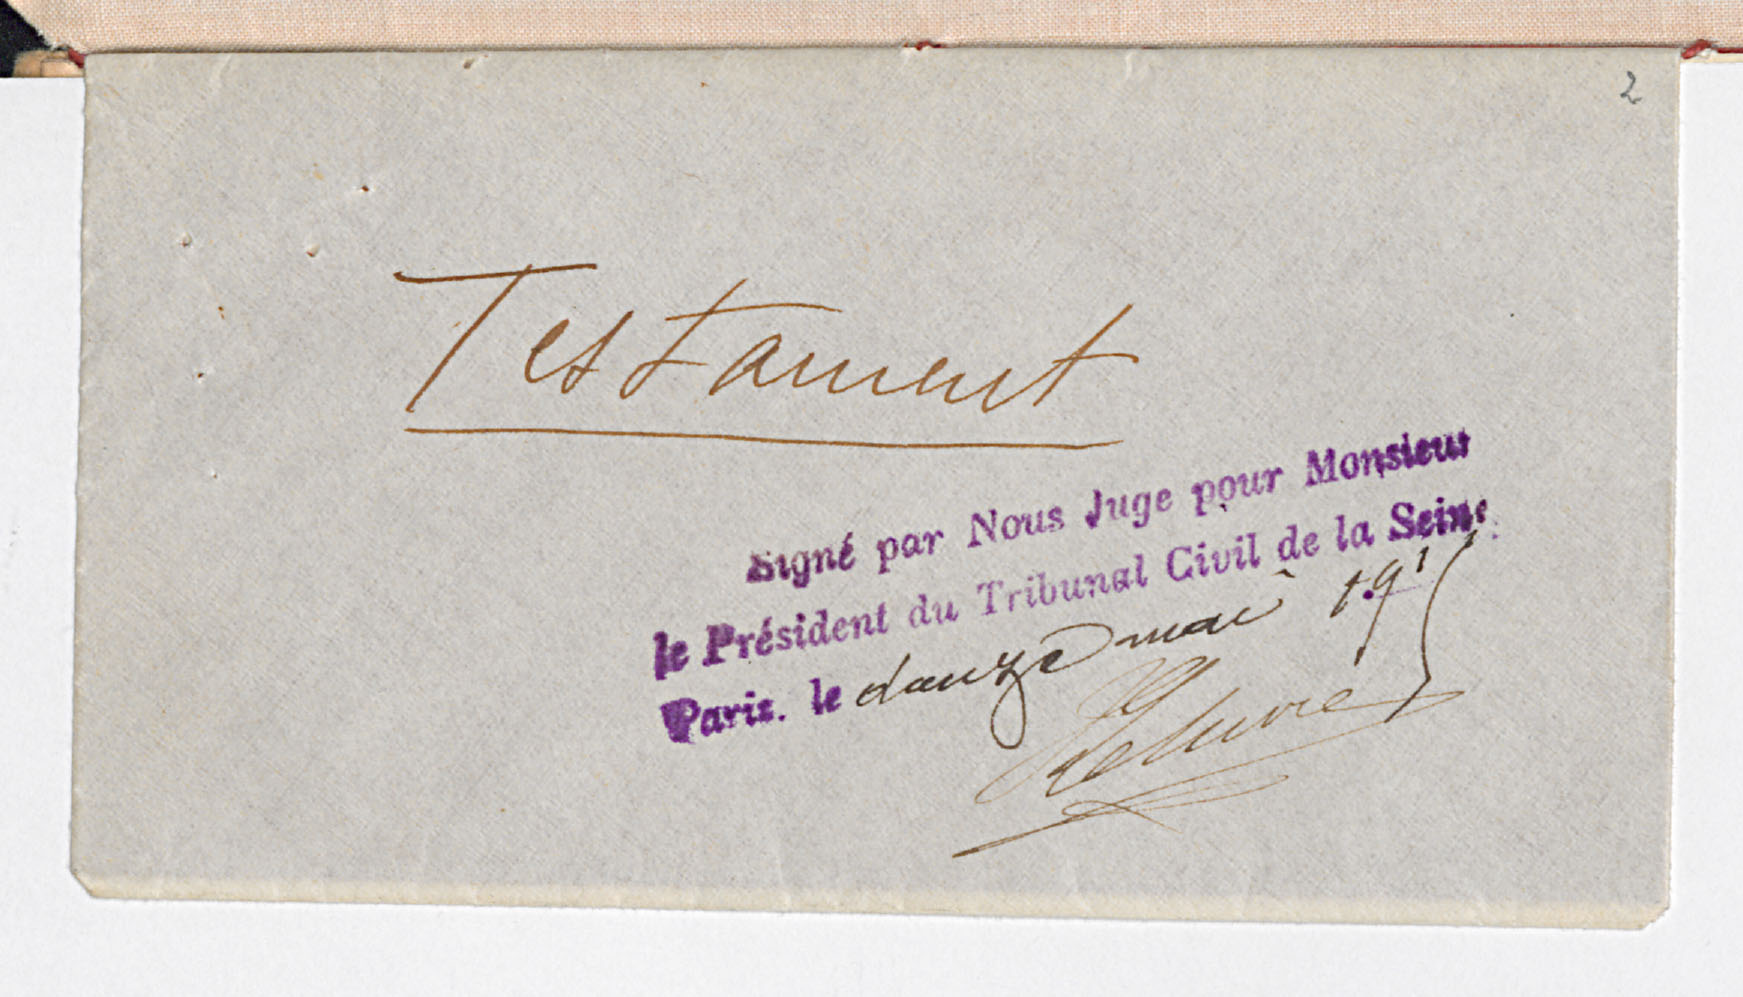 2
Testament
Signé par Nous Juge pour Monsieur
le Président du Tribunal Civil de la Seine
Paris. le douze mai 191